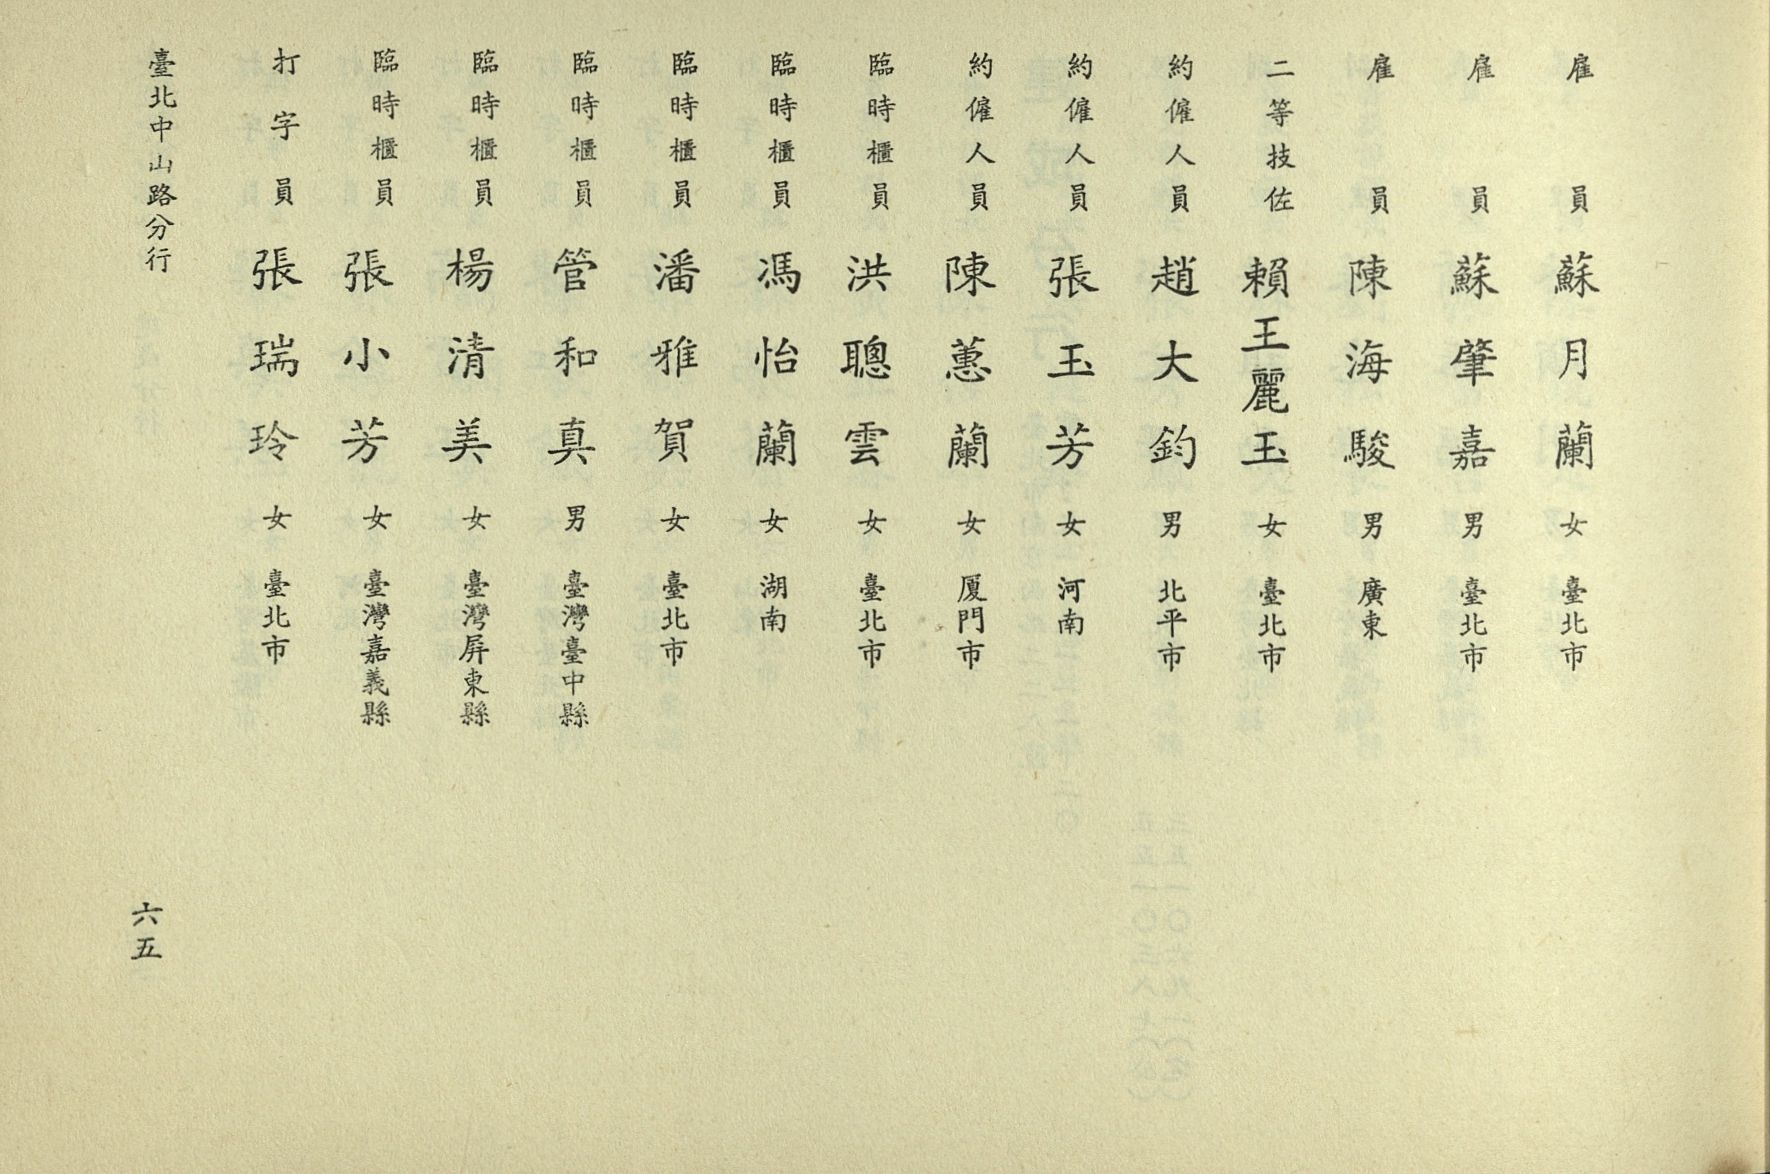 雇員 蘇月蘭 女 臺北市
雇員 蘇肇嘉 男 臺北市
雇員 陳海駿 男 廣東
二等技佐 賴王麗玉 女 臺北市
約僱人員 趙大鈞 男 北平市
約僱人員 張玉芳 女 河南
約僱人員 陳蕙蘭 女 厦門市
臨時櫃員 洪聰雲 女 臺北市
臨時櫃員 馮怡蘭 女 湖南
臨時櫃員 潘雅賀 女 臺北市
臨時櫃員 管和真 男 臺灣臺中縣
臨時櫃員 楊清美 女 臺灣屏東縣
臨時櫃員 張小芳 女 臺灣嘉義縣
打字員 張瑞玲 女 臺北市
臺北中山路分行
六五